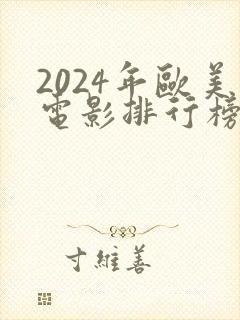 2024年歐美
電影排行榜
寸維善